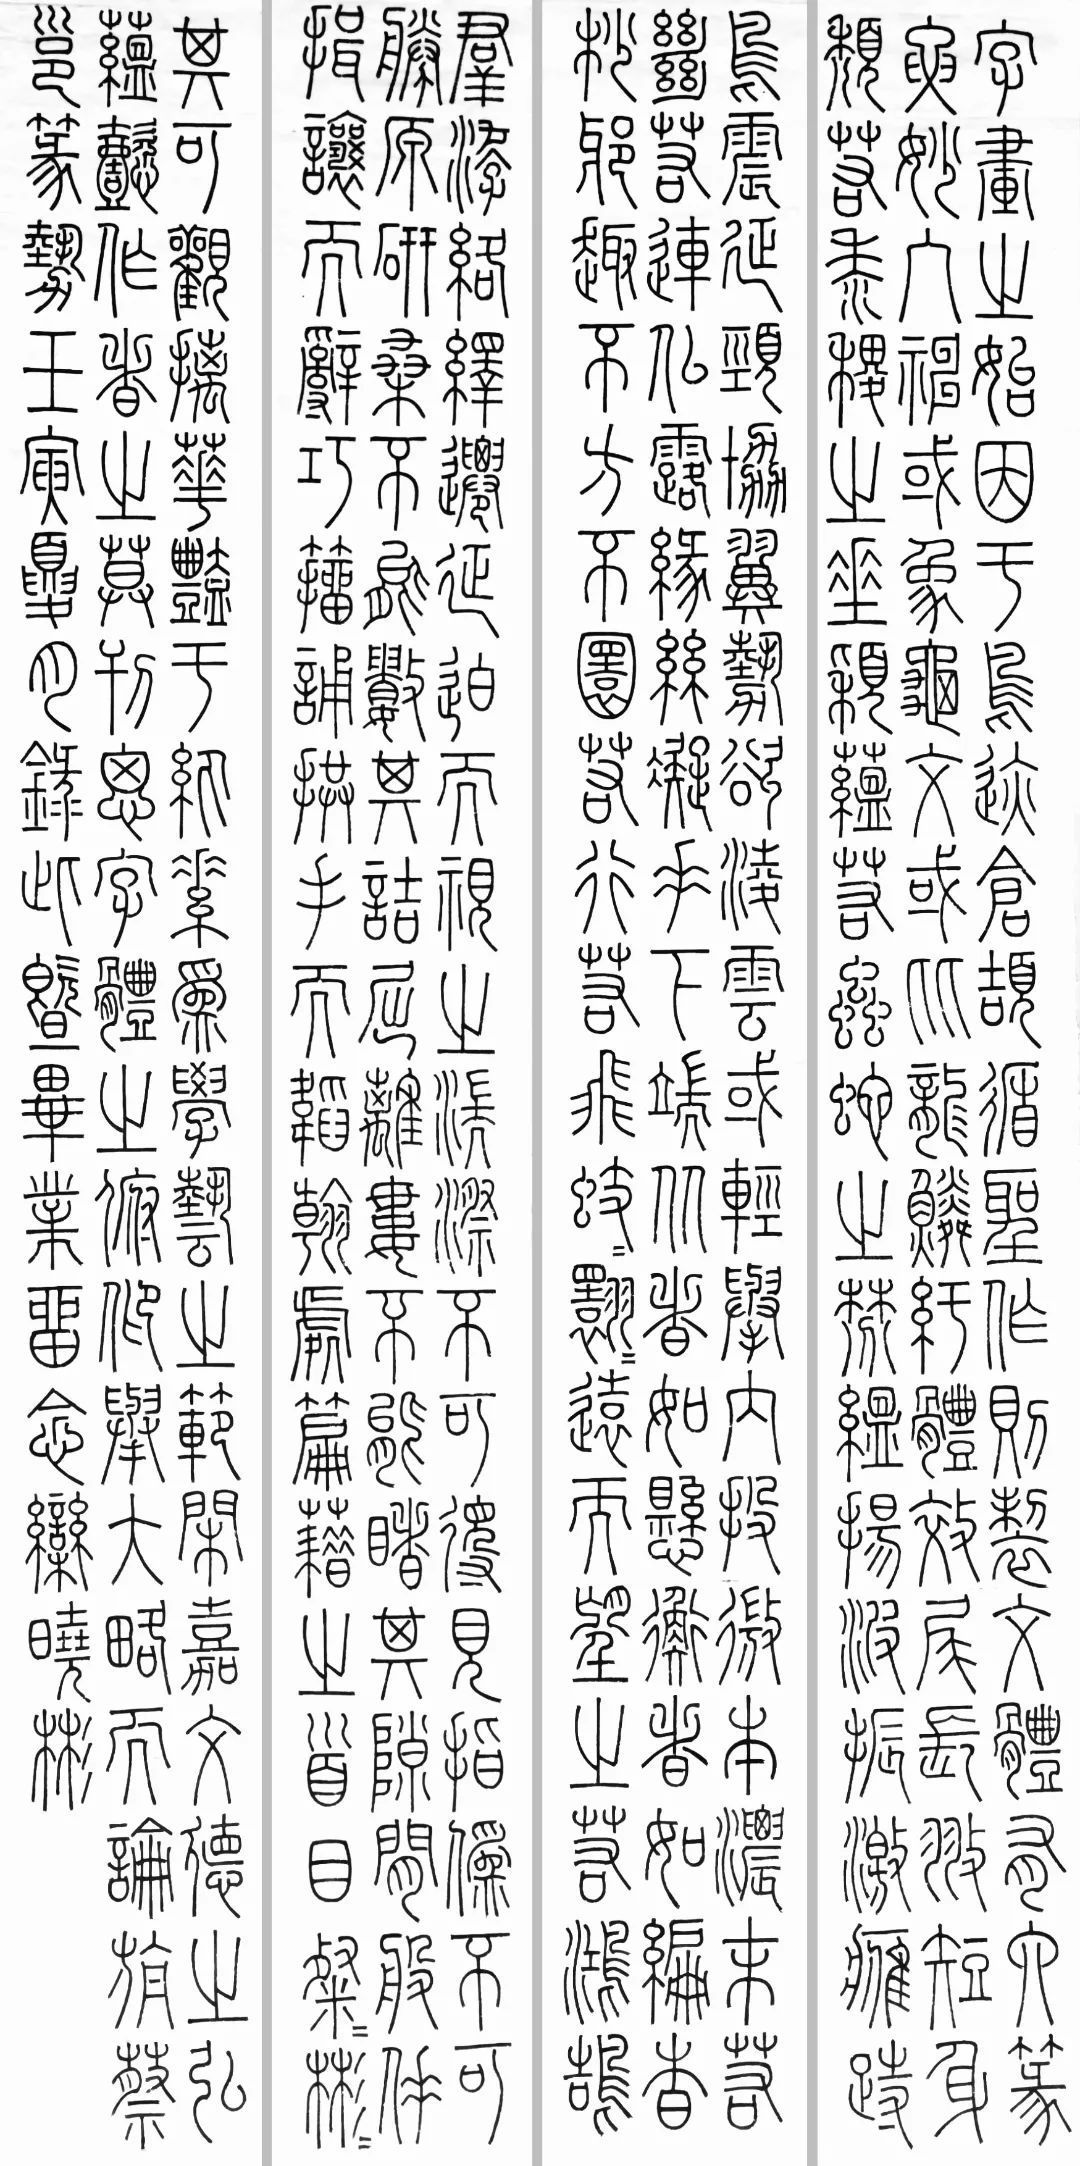 字畫之始因于鳥迹倉頡循聖作則製文體有六篆
要妙入神或象龜文或比龍鱗紆體效尾長翅短身
穨若黍稷之垂穎蘊若蟲蛇之棼縕揚波振激鷹跱
鳥震延頸協翼勢似凌雲或輕舉內投微本濃末若
絕若連似露緣絲凝垂下端從者如懸衡者如編杳
杪邪趣不方不圜若行若飛蚑〻翾〻遠而望之若鴻鵠
羣游絡繹遷延迫而視之湍漈不可得見指撝不可
勝原研桑不能數其詰屈離婁不能睹其隙間般倕
揖讓而辭巧籀誦拱手而韜翰處篇籍之首目粲〻彬〻
其可觀摛華豔于紈素為學藝之範閑嘉文德之弘
蘊懿作者之莫刊思字體之俯仰舉大略而論旃蔡
邕篆勢壬寅夏月錄此暨畢業留念欒曉彬